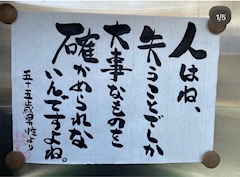 人はね、
失うことでしか
大事なものを
確かめられな
いんですよね。
五十五歳男性より
1/5